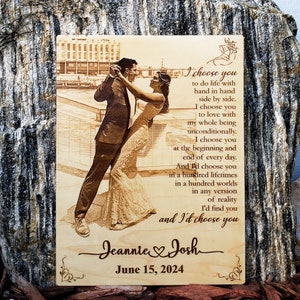 I choose you
to do life with
hand in hand
side by side.
I choose you
to love with
my whole being
unconditionally.
I choose you
at the beginning and
end of every day.
And I'd choose you
in a hundred lifetimes
in a hundred worlds
in any version
of reality
I'd find you
and I'd choose you
Jeannie Josh
June 15, 2024